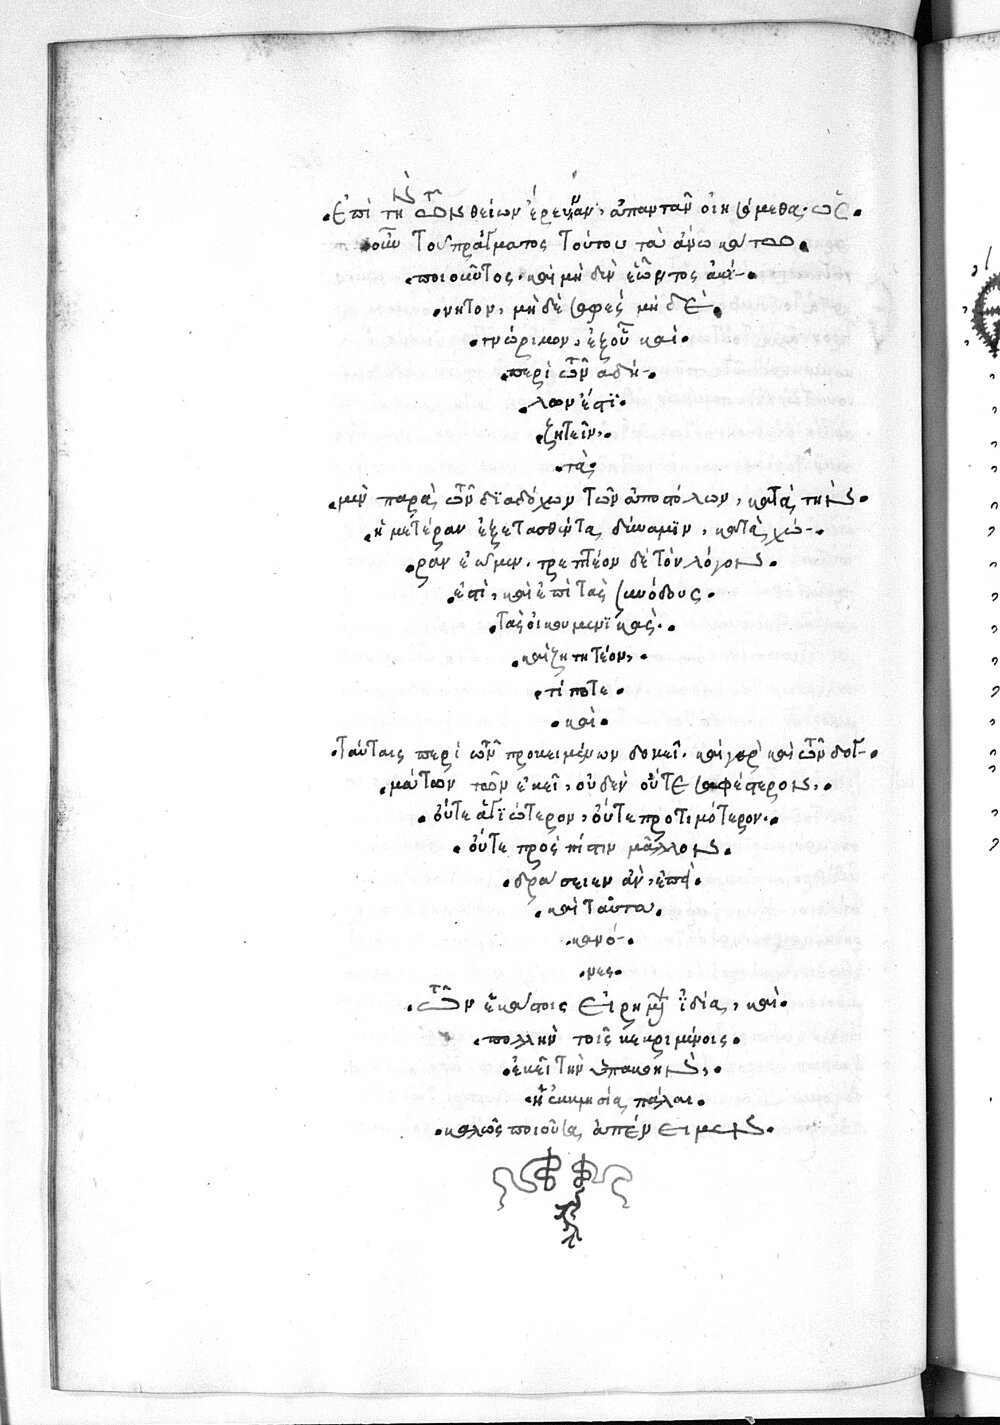 Ἐπὶ τὴν τῶν θείων ἔρευναν, ἀπαντᾶν οἰησόμεθα. ὡς
οὖν τοῦ πράγματος τούτου τὰ ἄνω κάτω
ποιοῦντος. καὶ μηδὲν ἐῶντος ἀκί-
νητον, μηδὲ σαφὲς μηδὲ
γνώριμον, ἐξοῦ καὶ
περὶ τῶν αδή-
λων ἐστὶ
ζητεῖν,
τὰ
μὲν παρὰ τῶν διαδόχων τῶν ἀποστόλων, κατὰ τὴν
ἡμετέραν ἐξετασθέντα δύναμιν, κατὰ χώ-
ραν ἐῶμεν. τρεπτέον δὲ τὸν λόγον
ἐστὶ, καὶ ἐπὶ τὰς συνόδους
τὰς οἰκουμενικὰς.
καὶ ζητητέον,
τί ποτε
καὶ
ταύταις περὶ τῶν προκειμένων δοκεῖ. καὶ γὰρ καὶ τῶν δογ-
μάτων τῶν ἐκεῖ, οὐδὲν οὔτε σαφέστερον,
οὔτε ἁγιώτερον, οὔτε προτιμότερον.
οὔτε πρὸς πίστιν μᾶλλον
δράσειεν ἂν, ἐπεὶ
καὶ ταῦτα
κανό-
νες
τῶν ἑκάστοις εἰρημένων ἰδία, καὶ
πολλὴν τοῖς κεκριμένοις
ἐκεῖ τὴν ὑπακοὴν,
ἡ ἐκκλησία πάλαι
καλῶς ποιοῦσα, ἀπένειμεν